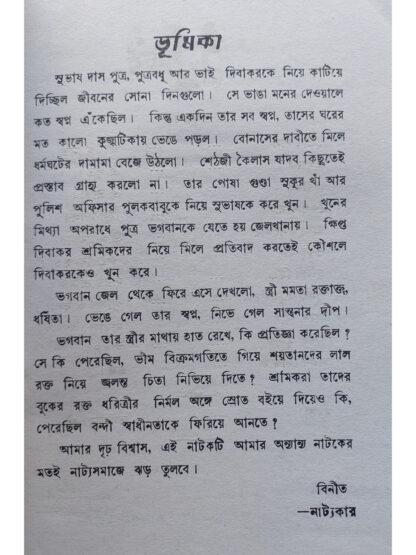 ভূমিকা
সুভাষ দাস পুত্র, পুত্রবধূ আর ভাই দিবাকরকে নিয়ে কাটিয়ে
দিচ্ছিল জীবনের সোনা দিনগুলো। সে ভাঙা মনের দেওয়ালে
কত স্বপ্ন এঁকেছিল। কিন্তু একদিন তার সব স্বপ্ন, তাসের ঘরের
মত কালো কুজ্ঝটিকায় ভেঙে পড়ল। বোনাসের দাবীতে মিলে
ধর্মঘটের দামামা বেজে উঠলো। শেঠজী কৈলাস যাদব কিছুতেই
প্রস্তাব গ্রাহ্য করলো না। তার পোষা গুণ্ডা সুকুর খাঁ আর
পুলিশ অফিসার পুলকবাবুকে নিয়ে সুভাষকে করে খুন। খুনের
মিথ্যা অপরাধে পুত্র ভগবানকে যেতে হয় জেলখানায়। ক্ষিপ্ত
দিবাকর শ্রমিকদের নিয়ে মিলে প্রতিবাদ করতেই কৌশলে
দিবাকরকেও খুন করে।
ভগবান জেল থেকে ফিরে এসে দেখলো, স্ত্রী মমতা রক্তাক্ত,
ধর্ষিতা। ভেঙে গেল তার স্বপ্ন, নিভে গেল সান্ত্বনার দীপ।
ভগবান তার স্ত্রীর মাথায় হাত রেখে, কি প্রতিজ্ঞা করেছিল?
সে কি পেরেছিল, ভীম বিক্রমগতিতে গিয়ে শয়তানদের লাল
রক্ত নিয়ে জলন্ত চিতা নিভিয়ে দিতে? শ্রমিকরা তাদের
বুকের রক্ত ধরিত্রীর নির্মল অঙ্গে স্রোত বইয়ে দিয়েও কি,
পেরেছিল বন্দী স্বাধীনতাকে ফিরিয়ে আনতে?
আমার দৃঢ় বিশ্বাস, এই নাটকটি আমার অন্যান্য নাটকের
মতই নাট্যসমাজে ঝড় তুলবে।
বিনীত
—নাট্যকার